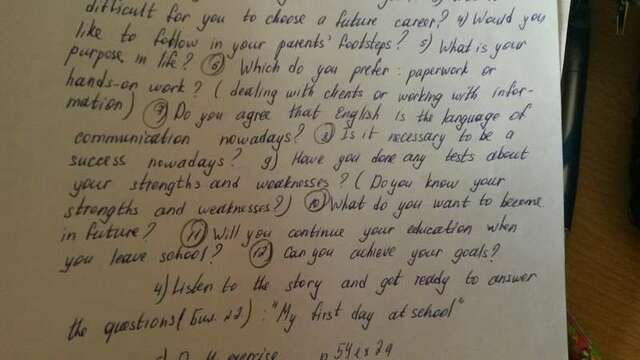 difficult for you to choose a future career? 4) Would you
like to follow in your parents' footsteps? 5) What is your
purpose in life? 6) Which do you prefer: paperwork or
hands-on work? (dealing with clients or working with infor-
mation) 7) Do you agree that English is the language of
communication nowadays? 8) Is it necessary to be a
success nowadays? 9) Have you done any tests about
your strengths and weaknesses? (Do you know your
strengths and weaknesses?) 10) What do you want to become
in future? 11) Will you continue your education when
you leave school? 12) Can you achieve your goals?
4) Listen to the story and get ready to answer
the questions (Бил. №2): "My first day at school"
exercise